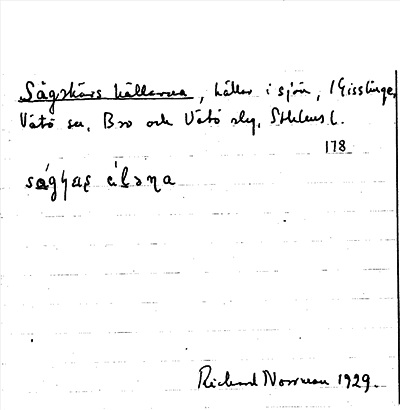 Lågskärs hällarna, hällar i sjön, Gisslinge,
Vätö sn, Bro och Vätö slg, Sthlms l.
178
Richard Norrman 1929.